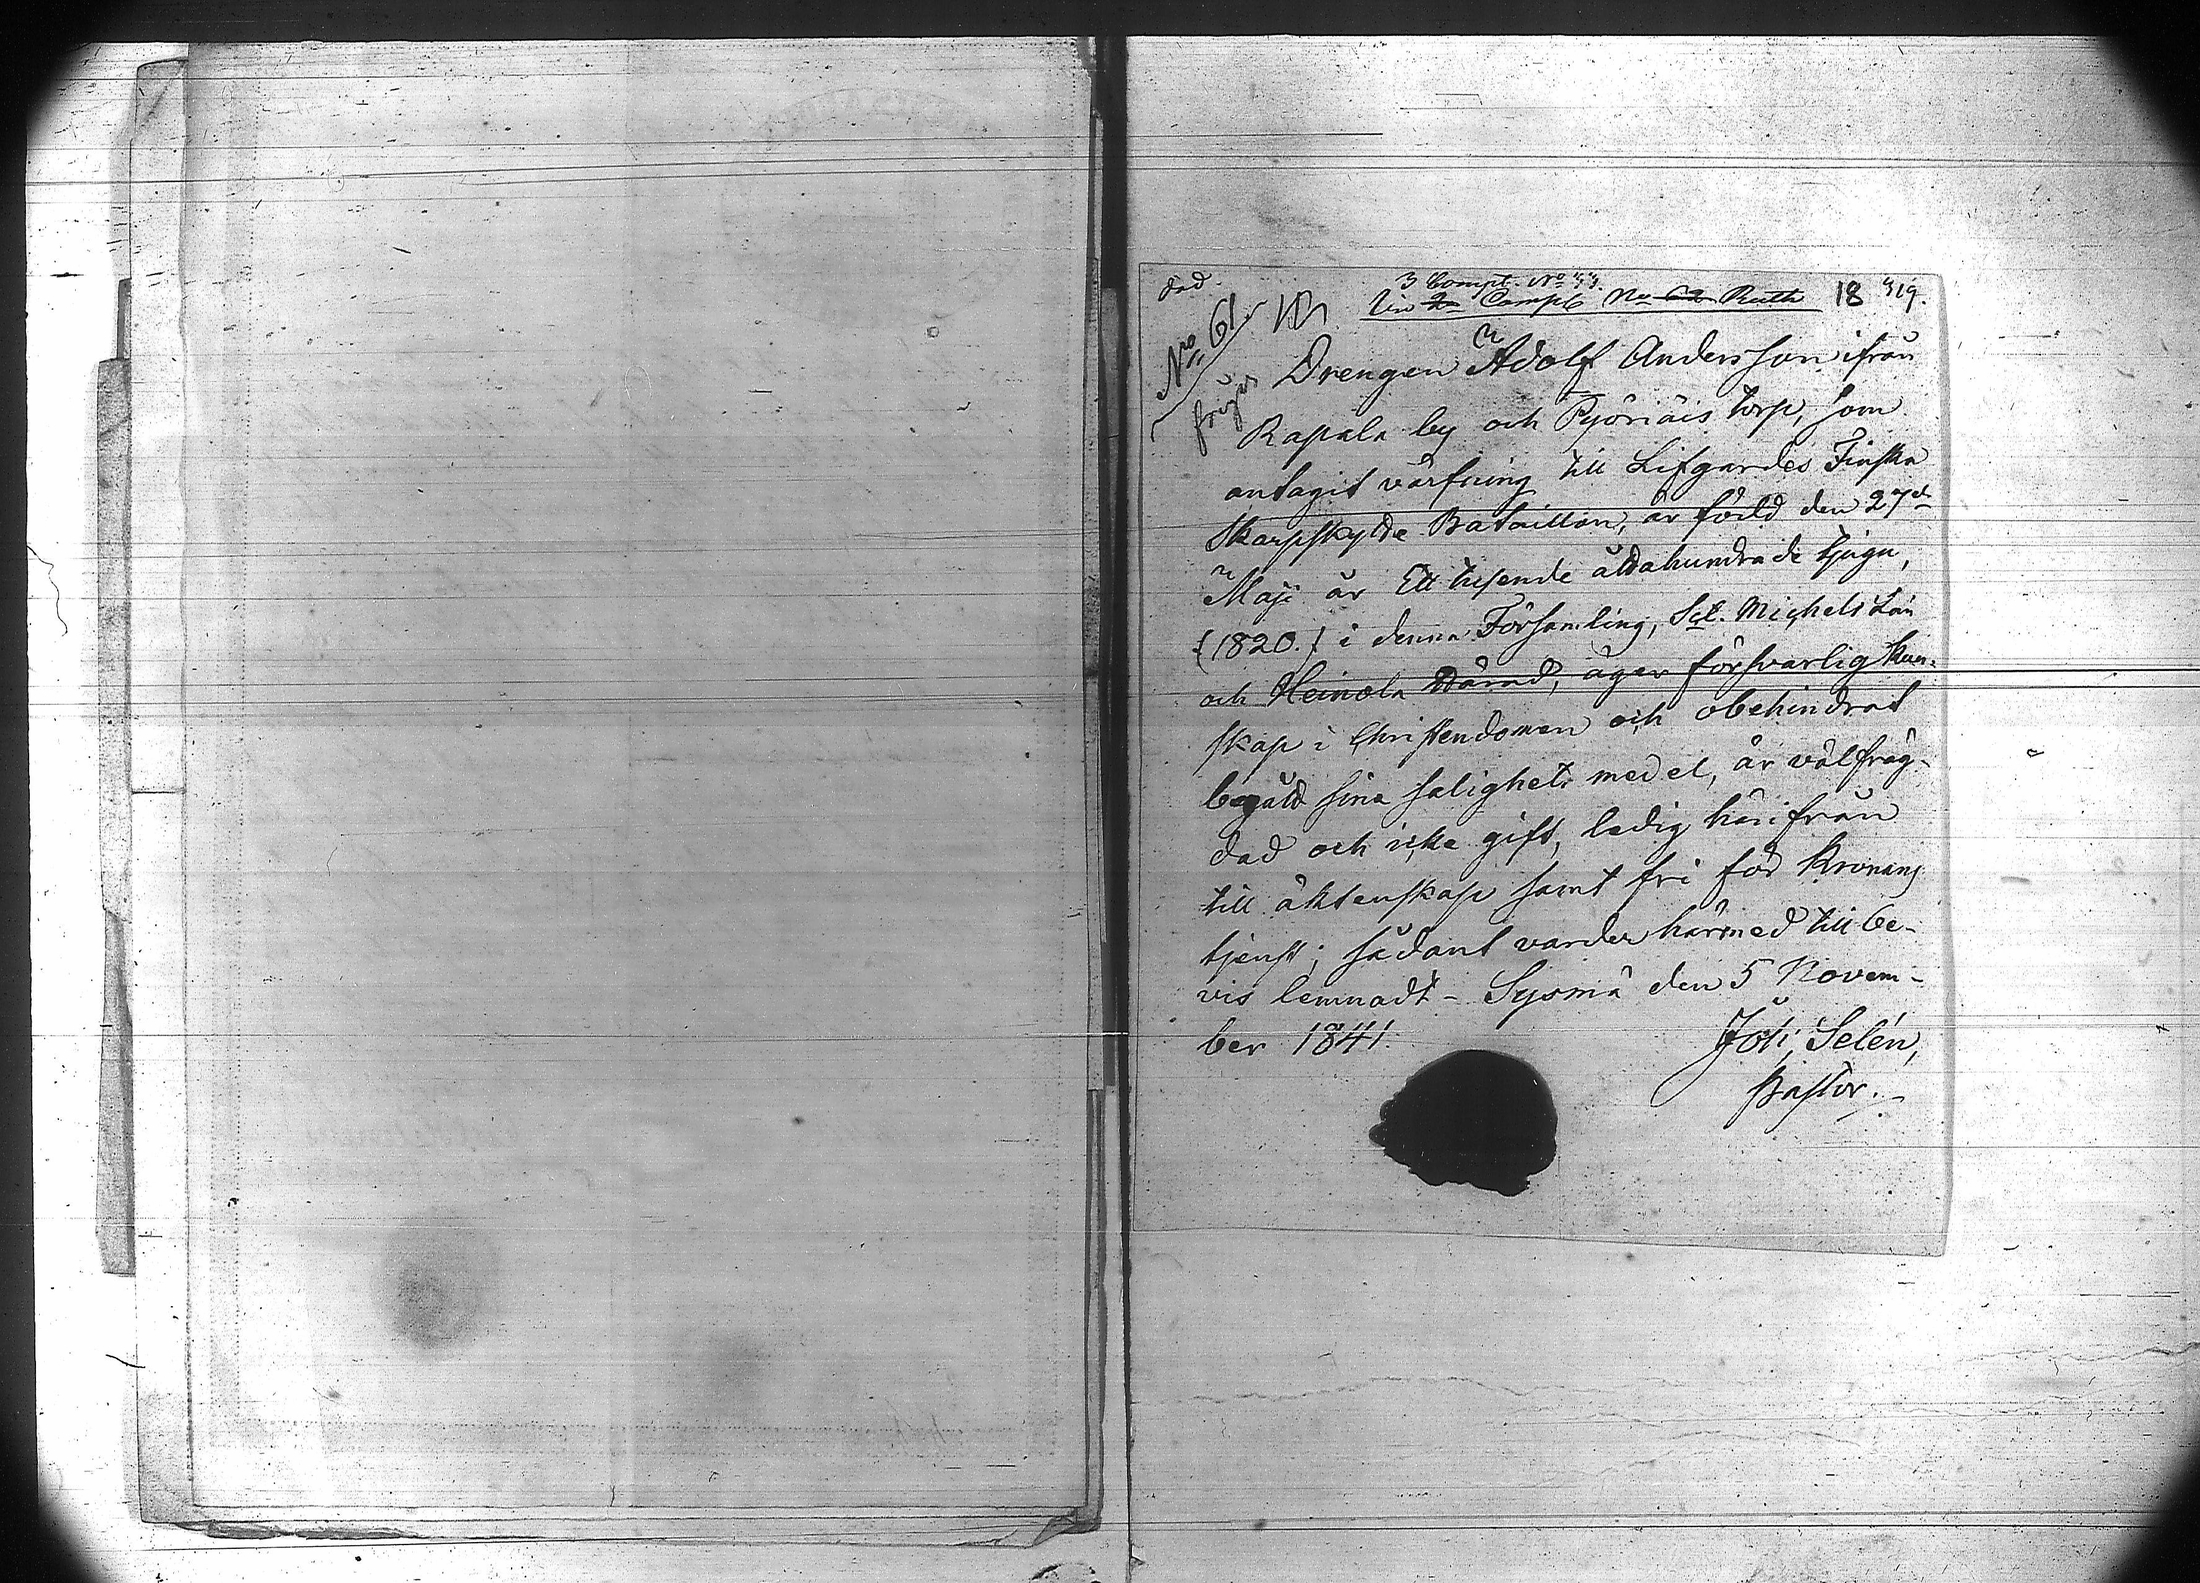 död.
3 Compt. No 33.
vid 2a Comp6 No 62 Ruth 18 319.
No 61.
Drengen Adolf Andersson ifrån
Rapala by och Pyöriäis torp, som
antagit värfning till Lifgardes Finska
Skarpskytte Bataillon, är född den 27de
Maji år Ett tusende åttahundrade tjugu,
(1820.) i denna Församling, Sct. Michels Län
och Heinola Härad, äger försvarlig kun-
skap i Christendomen och obehindrat
begått sina salighets medel, är välfräg-
dad och icke gift, ledig härifrån
till äktenskap samt fri för Kronans
tjenst; sådant varder härmed till be-
vis lemnadt - Sysmä den 5 Novem-
ber 1841.
Joh; Selén,
Pastor.